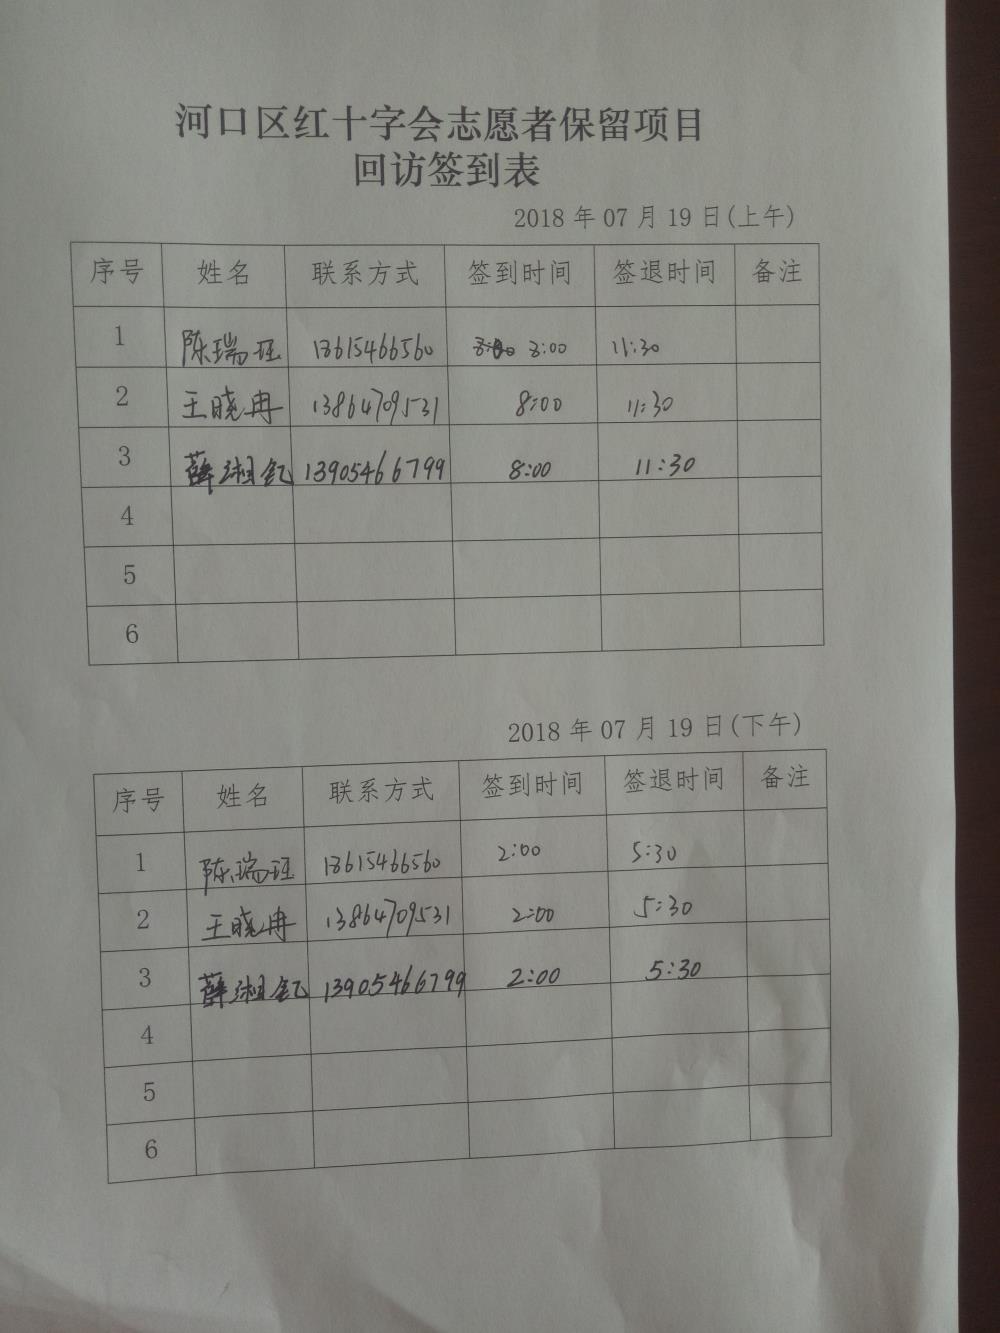 河口区红十字会志愿者保留项目
回访签到表
2018 年 07 月 19 日(上午)
序号 姓名 联系方式 签到时间 签退时间 备注
1 陈瑞珏 18615466560 8:00 11:30
2 王晓冉 13864709531 8:00 11:30
3 薛湘钇 13905466799 8:00 11:30
4
5
6
2018 年 07 月 19 日(下午)
序号 姓名 联系方式 签到时间 签退时间 备注
1 陈瑞珏 18615466560 2:00 5:30
2 王晓冉 13864709531 2:00 5:30
3 薛湘钇 13905466799 2:00 5:30
4
5
6